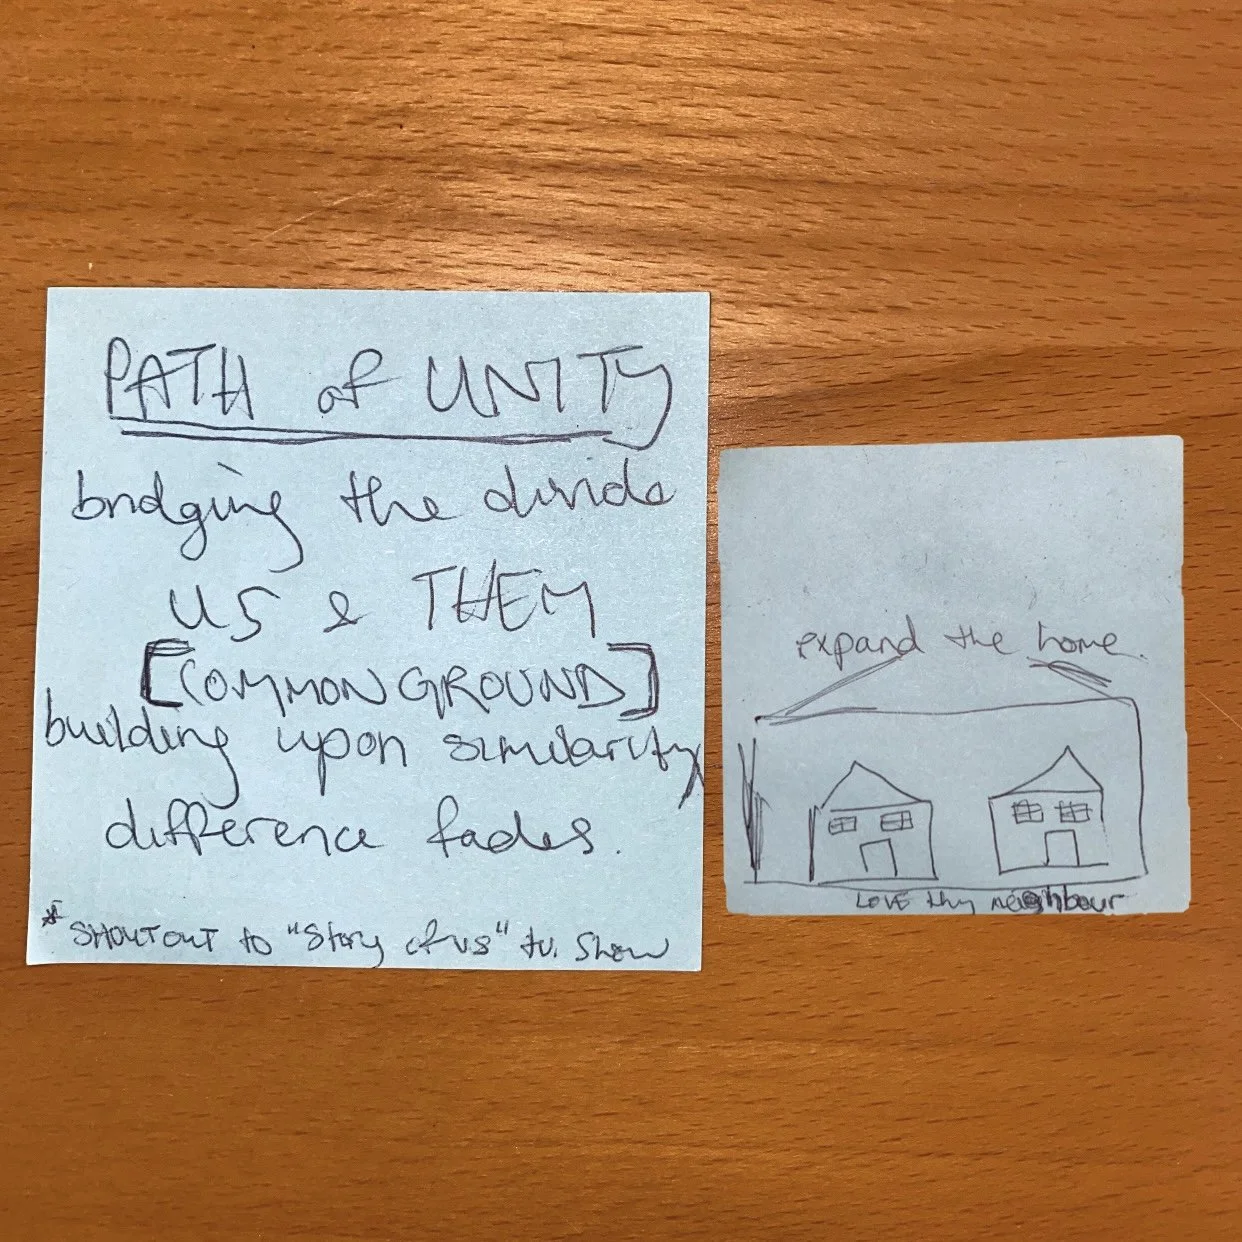 PATH of UNITY
bridging the divide
US & THEM
[COMMON GROUND]
building upon similarity
difference fades.
* SHOUTOUT to "Story of us" tv. Show
expand the home.
LOVE thy neighbour